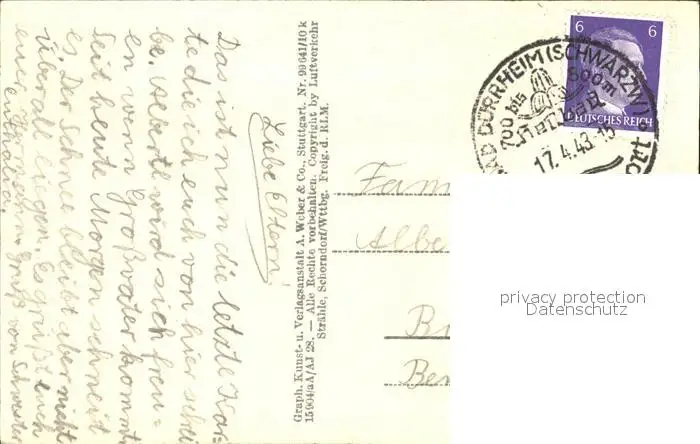 Liebe Eltern!
Das ist nun die letzte Kar-
te die ich euch von hier schrei
be. Albertle wird sich freu=
en wenn Großvater kommt
Seit heute Morgen schneit
es. Der Schnee bleibt aber nicht
überal liegen. Es grüßt euch
euer
Gruß von Schwester
Graph. Kunst- u. Verlagsanstalt A. Weber & Co., Stuttgart. Nr. 99641/10 k
15904/aA/AJ 28. — Alle Rechte vorbehalten. Copyright by Luftverkehr
Strähle, Schorndorf/Wttbg. Freig. d. RLM.
6 6
DEUTSCHES REICH
BAD DÜRRHEIM (SCHWARZW.)
700 bis 800m
17.4.43-15
Fam
Albe
B
Be
privacy protection
Datenschutz